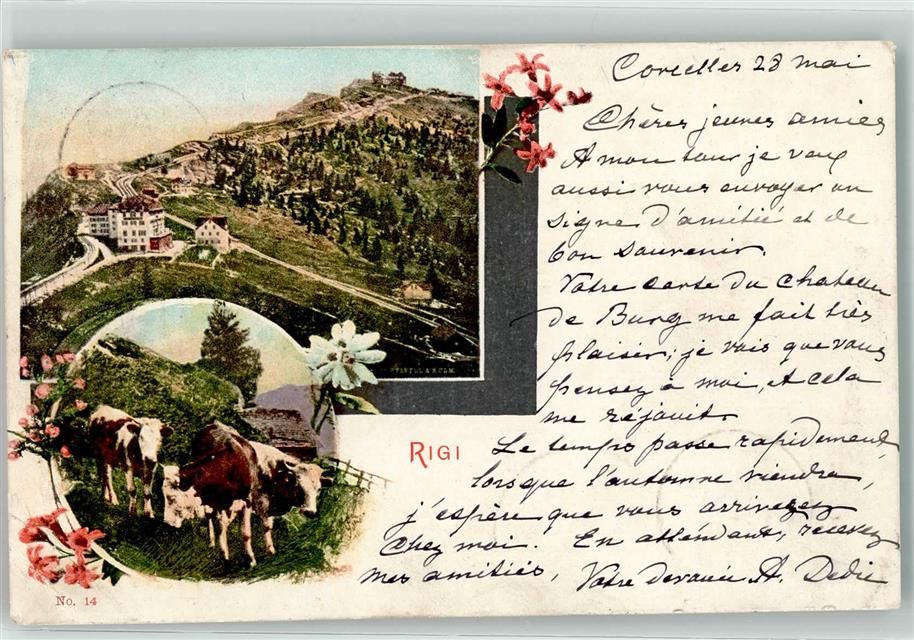 Corcelles 28 mai
Chères jeunes amies
A mon tour je veux
aussi vous envoyer un
signe d'amitié et de
bon souvenir.
Votre carte du chateau
de Burg me fait très
plaisir, je vois que vous
pensez à moi, et cela
me réjouit.
Le temps passe rapidement,
lorsque l'automne viendra,
j'espère que vous arriverez
Chez moi. En attendant, recevez
mes amitiés, Votre devouée A. Dedie
STAFFEL & KULM.
RIGI
No. 14